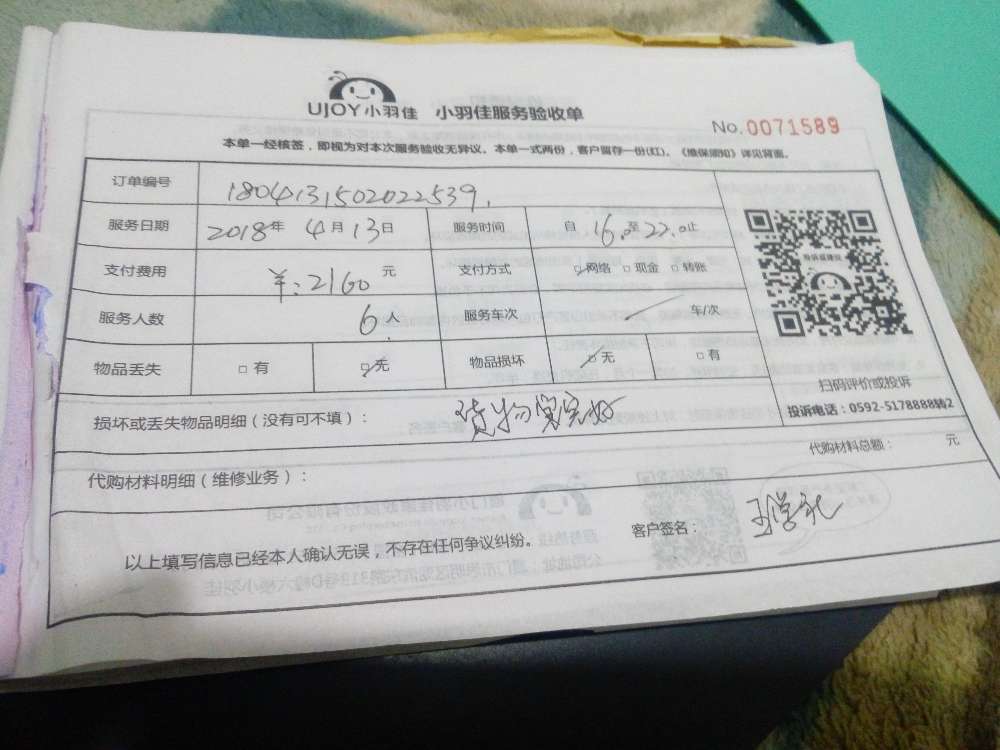 UJOY小羽佳 小羽佳服务验收单
No.0071589
本单一经核签，即视为对本次服务验收无异议。本单一式两份，客户留存一份(红)。《维保须知》详见背面。
订单编号 1804131502022539
服务日期 2018年 4月13日 服务时间 自 16.至22.止
支付费用 ￥:2160 元 支付方式 ☑网络 □现金 □转账
服务人数 6 人 服务车次 / 车/次
物品丢失 □有 ☑无 物品损坏 ☑无 □有
扫码评价或投诉
投诉电话：0592-5178888转2
损坏或丢失物品明细（没有可不填）： 货物完好
代购材料总额： 元
代购材料明细（维修业务）：
以上填写信息已经本人确认无误，不存在任何争议纠纷。 客户签名： 王学礼